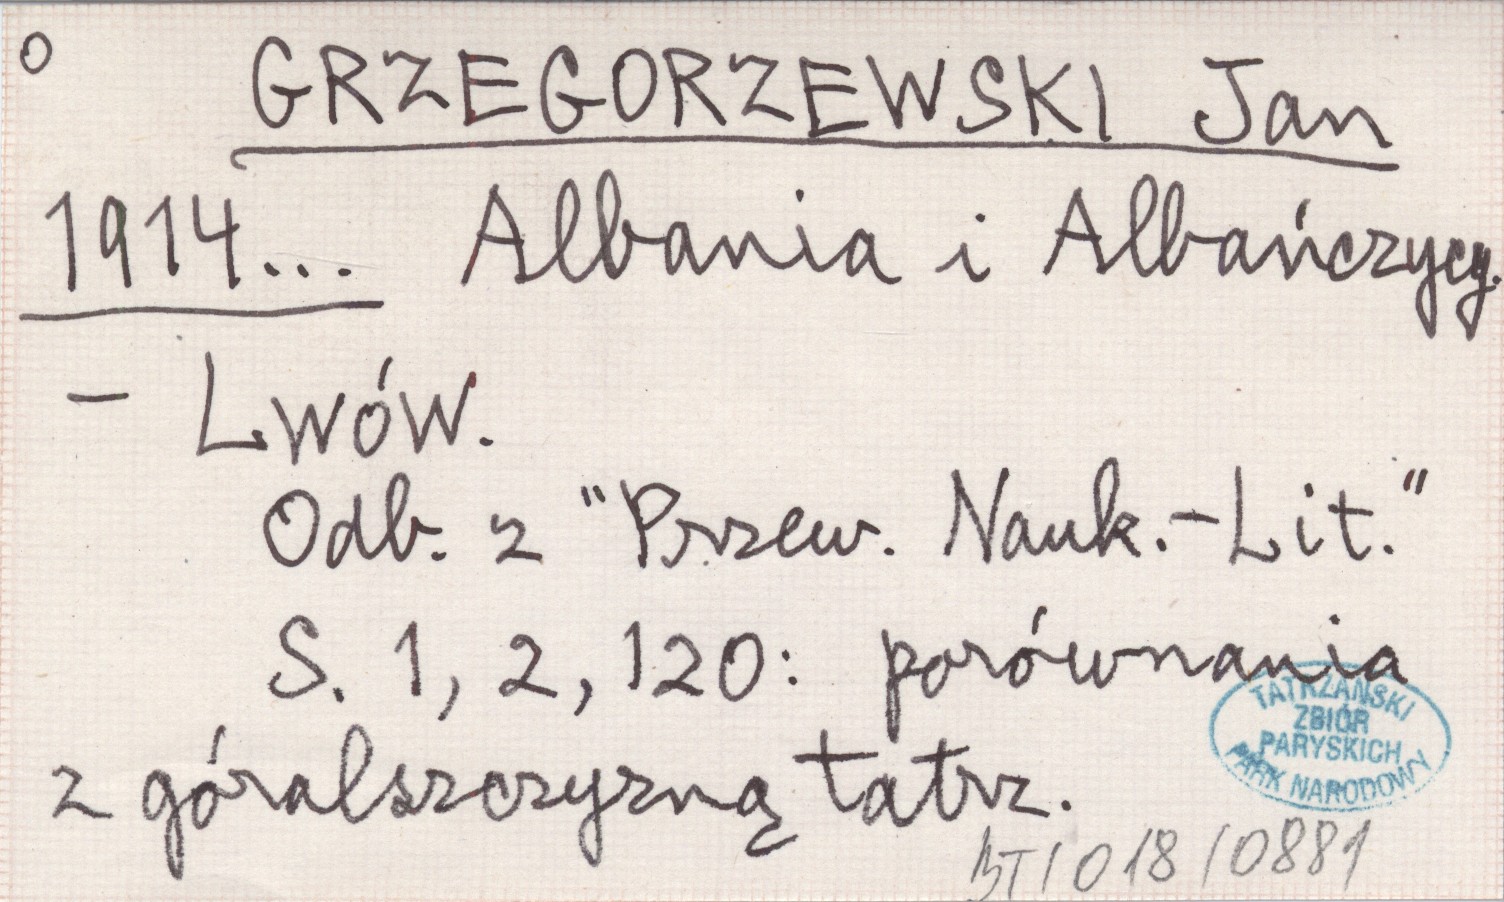 o GRZEGORZEWSKI Jan
1914... Albania i Albańczycy.
– Lwów.
Odb. z "Przew. Nauk.-Lit."
S. 1, 2, 120: porównania
z góralszczyzną tatrz.
TATRZAŃSKI
ZBIÓR
PARYSKICH
PARK NARODOWY
BT/018/0881